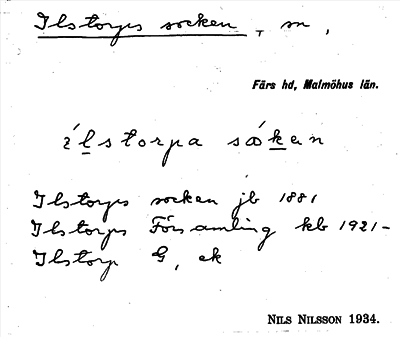 Ilstorps socken, m,
Färs hd, Malmöhus län.
ílstorpa sǿkɛn
Ilstorps socken jb 1881
Ilstorps Församling kb 1921-
Ilstorp G, ek
NILS NILSSON 1934.